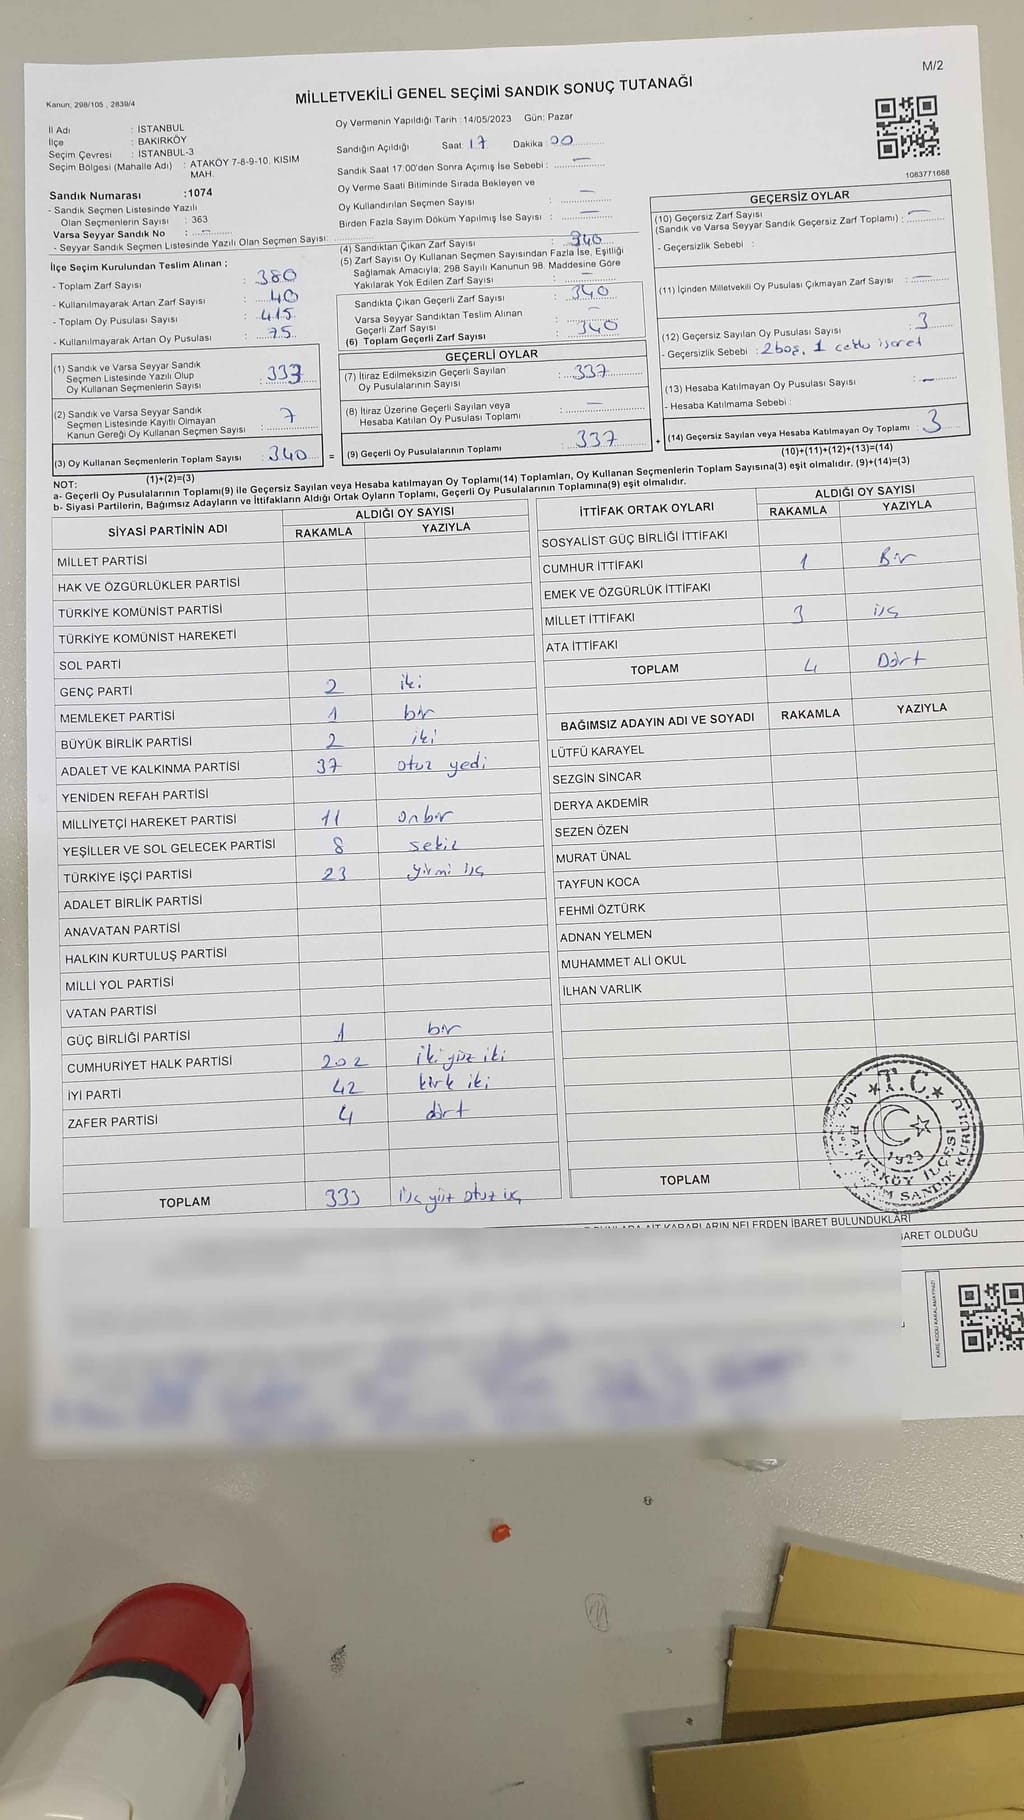 M/2
Kanun; 298/105 , 2839/4
MİLLETVEKİLİ GENEL SEÇİMİ SANDIK SONUÇ TUTANAĞI
İl Adı : İSTANBUL
İlçe : BAKIRKÖY
Seçim Çevresi : İSTANBUL-3
Seçim Bölgesi (Mahalle Adı) : ATAKÖY 7-8-9-10. KISIM MAH.
Sandık Numarası :1074
- Sandık Seçmen Listesinde Yazılı
Olan Seçmenlerin Sayısı : 363
Varsa Seyyar Sandık No : –
- Seyyar Sandık Seçmen Listesinde Yazılı Olan Seçmen Sayısı:
Oy Vermenin Yapıldığı Tarih :14/05/2023 Gün: Pazar
Sandığın Açıldığı Saat 17 Dakika 00
Sandık Saat 17:00'den Sonra Açımış İse Sebebi : –
Oy Verme Saati Bitiminde Sırada Bekleyen ve
Oy Kullandırılan Seçmen Sayısı : –
Birden Fazla Sayım Döküm Yapılmış İse Sayısı : –
1083771668
İlçe Seçim Kurulundan Teslim Alınan ;
- Toplam Zarf Sayısı : 380
- Kullanılmayarak Artan Zarf Sayısı : 40
- Toplam Oy Pusulası Sayısı : 415
- Kullanılmayarak Artan Oy Pusulası : 75
(1) Sandık ve Varsa Seyyar Sandık
Seçmen Listesinde Yazılı Olup
Oy Kullanan Seçmenlerin Sayısı : 333
(2) Sandık ve Varsa Seyyar Sandık
Seçmen Listesinde Kayıtlı Olmayan
Kanun Gereği Oy Kullanan Seçmen Sayısı : 7
(3) Oy Kullanan Seçmenlerin Toplam Sayısı : 340
(1)+(2)=(3)
(4) Sandıktan Çıkan Zarf Sayısı : 340
(5) Zarf Sayısı Oy Kullanan Seçmen Sayısından Fazla İse, Eşitliği
Sağlamak Amacıyla; 298 Sayılı Kanunun 98. Maddesine Göre
Yakılarak Yok Edilen Zarf Sayısı : –
Sandıkta Çıkan Geçerli Zarf Sayısı : 340
Varsa Seyyar Sandıktan Teslim Alınan
Geçerli Zarf Sayısı : –
(6) Toplam Geçerli Zarf Sayısı : 340
GEÇERLİ OYLAR
(7) İtiraz Edilmeksizin Geçerli Sayılan
Oy Pusulalarının Sayısı : 337
(8) İtiraz Üzerine Geçerli Sayılan veya
Hesaba Katılan Oy Pusulası Toplamı : –
= (9) Geçerli Oy Pusulalarının Toplamı : 337 +
GEÇERSİZ OYLAR
(10) Geçersiz Zarf Sayısı
(Sandık ve Varsa Seyyar Sandık Geçersiz Zarf Toplamı) : –
- Geçersizlik Sebebi :
(11) İçinden Milletvekili Oy Pusulası Çıkmayan Zarf Sayısı : –
(12) Geçersiz Sayılan Oy Pusulası Sayısı : 3
- Geçersizlik Sebebi : 2 boş, 1 çoklu işaret
(13) Hesaba Katılmayan Oy Pusulası Sayısı : –
- Hesaba Katılmama Sebebi :
(14) Geçersiz Sayılan veya Hesaba Katılmayan Oy Toplamı : 3
(10)+(11)+(12)+(13)=(14)
NOT:
a- Geçerli Oy Pusulalarının Toplamı(9) ile Geçersiz Sayılan veya Hesaba katılmayan Oy Toplamı(14) Toplamları, Oy Kullanan Seçmenlerin Toplam Sayısına(3) eşit olmalıdır. (9)+(14)=(3)
b- Siyasi Partilerin, Bağımsız Adayların ve İttifakların Aldığı Ortak Oyların Toplamı, Geçerli Oy Pusulalarının Toplamına(9) eşit olmalıdır.
SİYASİ PARTİNİN ADI ALDIĞI OY SAYISI
RAKAMLA YAZIYLA
MİLLET PARTİSİ
HAK VE ÖZGÜRLÜKLER PARTİSİ
TÜRKİYE KOMÜNİST PARTİSİ
TÜRKİYE KOMÜNİST HAREKETİ
SOL PARTİ
GENÇ PARTİ 2 iki
MEMLEKET PARTİSİ 1 bir
BÜYÜK BİRLİK PARTİSİ 2 iki
ADALET VE KALKINMA PARTİSİ 37 otuz yedi
YENİDEN REFAH PARTİSİ
MİLLİYETÇİ HAREKET PARTİSİ 11 onbir
YEŞİLLER VE SOL GELECEK PARTİSİ 8 sekiz
TÜRKİYE İŞÇİ PARTİSİ 23 yirmi üç
ADALET BİRLİK PARTİSİ
ANAVATAN PARTİSİ
HALKIN KURTULUŞ PARTİSİ
MİLLİ YOL PARTİSİ
VATAN PARTİSİ
GÜÇ BİRLİĞİ PARTİSİ 1 bir
CUMHURİYET HALK PARTİSİ 202 iki yüz iki
İYİ PARTİ 42 kırk iki
ZAFER PARTİSİ 4 dört
TOPLAM 333 üç yüz otuz üç
İTTİFAK ORTAK OYLARI ALDIĞI OY SAYISI
RAKAMLA YAZIYLA
SOSYALİST GÜÇ BİRLİĞİ İTTİFAKI
CUMHUR İTTİFAKI 1 Bir
EMEK VE ÖZGÜRLÜK İTTİFAKI
MİLLET İTTİFAKI 3 üç
ATA İTTİFAKI
TOPLAM 4 Dört
BAĞIMSIZ ADAYIN ADI VE SOYADI RAKAMLA YAZIYLA
LÜTFÜ KARAYEL
SEZGİN SİNCAR
DERYA AKDEMİR
SEZEN ÖZEN
MURAT ÜNAL
TAYFUN KOCA
FEHMİ ÖZTÜRK
ADNAN YELMEN
MUHAMMET ALİ OKUL
İLHAN VARLIK
TOPLAM
T.C.
1923
BAKIRKÖY İLÇESİ
SANDIK KURULU
AİT KARARLARIN NELERDEN İBARET BULUNDUKLARI
BARET OLDUĞU
KARE KODU KARALAMAYINIZ